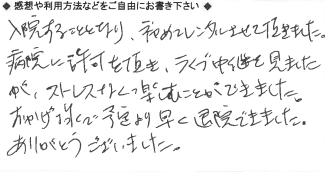 ◆ 感想や利用方法などをご自由にお書き下さい ◆
入院することとなり、初めてレンタルさせて頂きました。
病院に許可を頂き、ライブ中継を見ました
が、ストレスなく楽しむことができました。
おかげ様で予定より早く退院できました。
ありがとうございました。